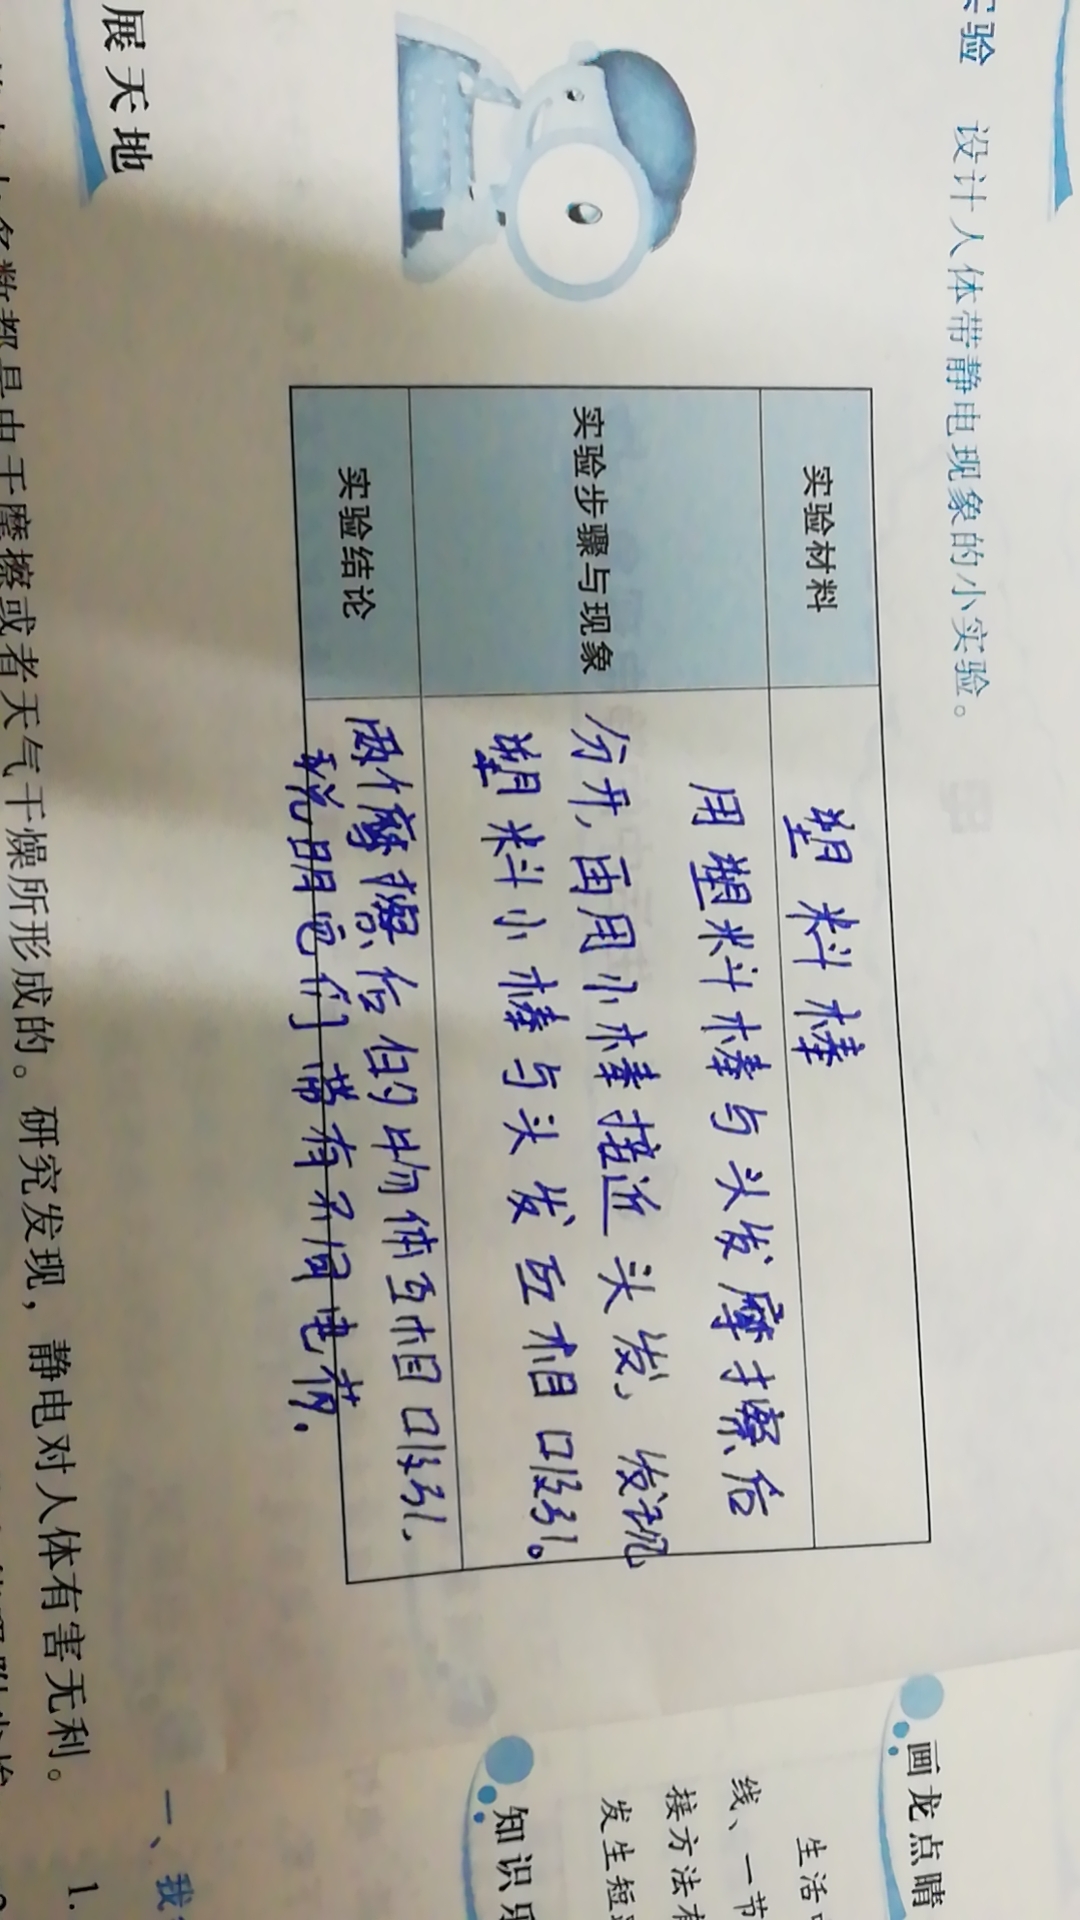 实验 设计人体带静电现象的小实验。
实验材料
塑料棒
实验步骤与现象
用塑料棒与头发摩擦后
分开,由用小棒接近头发,发现
塑料小棒与头发互相吸引。
实验结论
两个摩擦后的物体互相吸引,
说明它们带有不同电荷.
展天地
数都是由于摩擦或者天气干燥所形成的。研究发现,静电对人体有害无利。
画龙点睛
生活
线、一节
接方法有
发生短
知识乐
一、我
1.